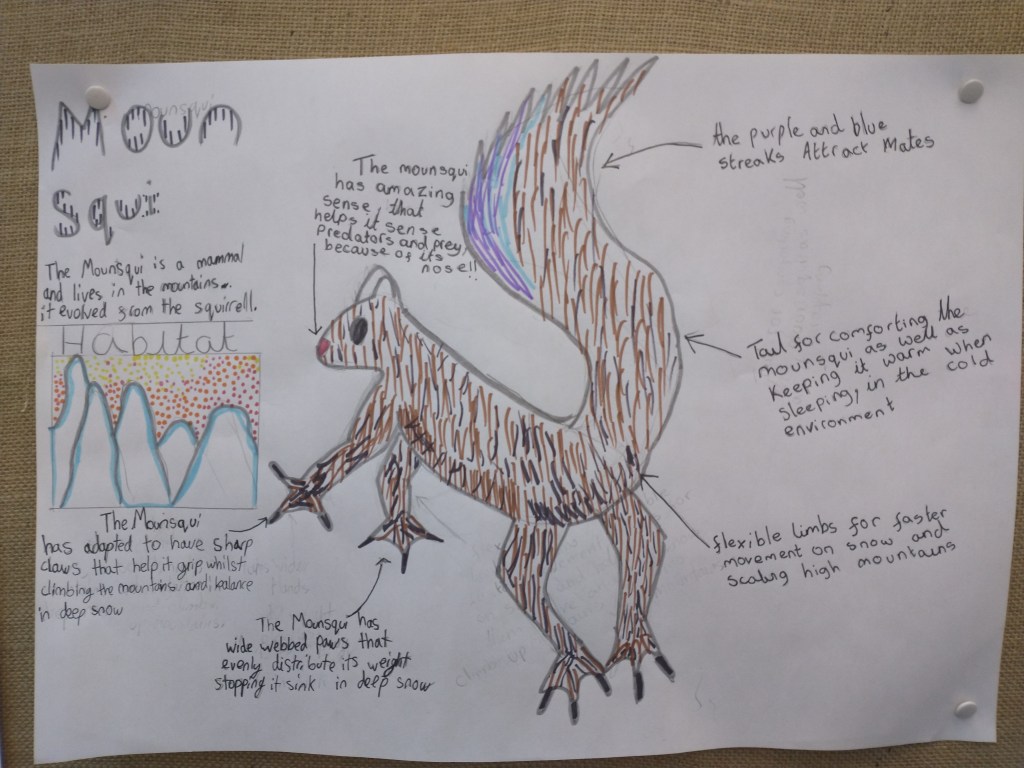 Moun
Squi
The Mounsqui is a mammal
and lives in the mountains..
it evolved from the squirrell.
Habitat
The mounsqui
has amazing
sense, that
helps it sense
Predators and prey,
because of its
nose!!
the purple and blue
streaks Attract Mates
Tail for comforting the
mounsqui as well as
Keeping it warm when
sleeping, in the cold
environment
flexible limbs for faster
movement on snow and
Scaling high mountains
The Mounsqui
has adapted to have sharp
claws that help it grip whilst
climbing the mountains and balance
in deep snow
The Mounsqui has
wide webbed paws that
evenly distribute its weight
stopping it sink in deep snow